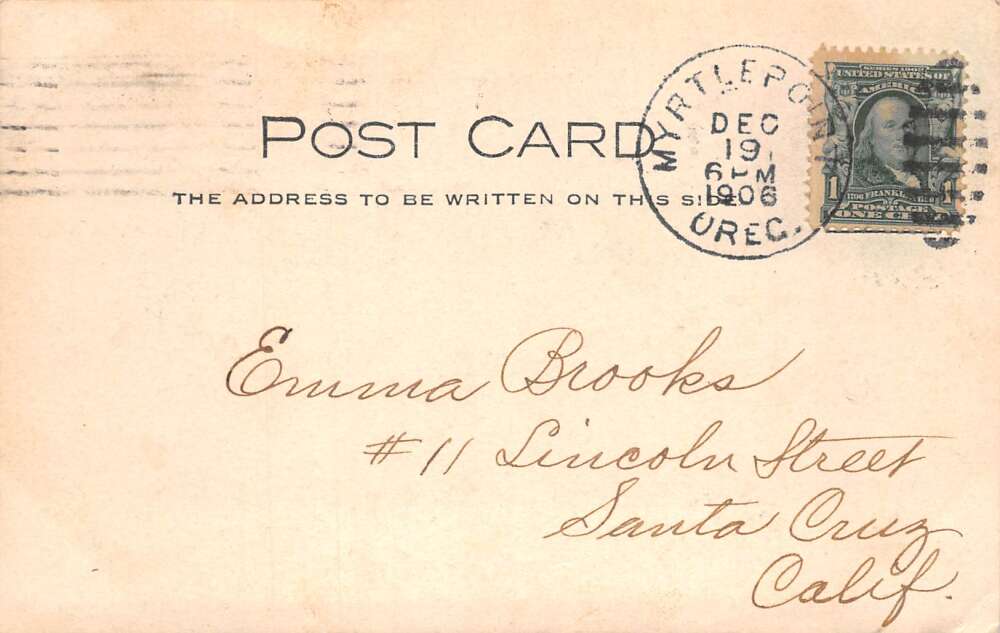 POST CARD
THE ADDRESS TO BE WRITTEN ON THIS SIDE
MYRTLEPOINT
DEC
19
6 PM
1906
OREG.
SERIES 1902
UNITED STATES OF
AMERICA
1 FRANKLIN 1
POSTAGE
ONE CENT
Emma Brooks
#11 Lincoln Street
Santa Cruz
Calif.